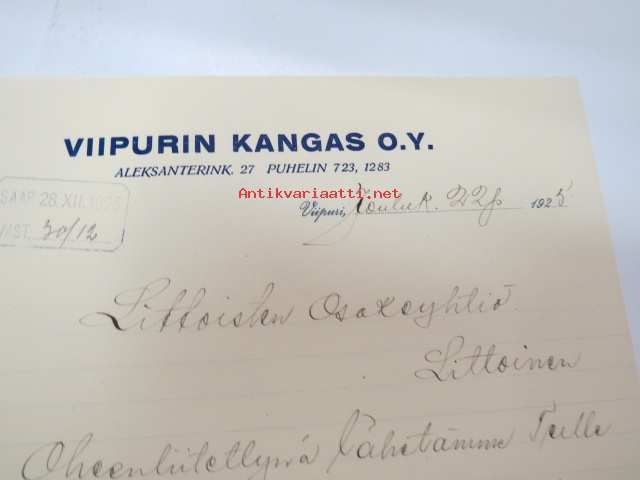 VIIPURIN KANGAS O.Y.
ALEKSANTERINK. 27 PUHELIN 723, 1283
Antikvariaatti.net
SAAP. 28. XII. 1925
Viipuri, Jouluk. 22 p 1925
VAST. 30/12
Littoisten Osakeyhtiö
Littoinen
Oheenliitettynä lähetämme Teille